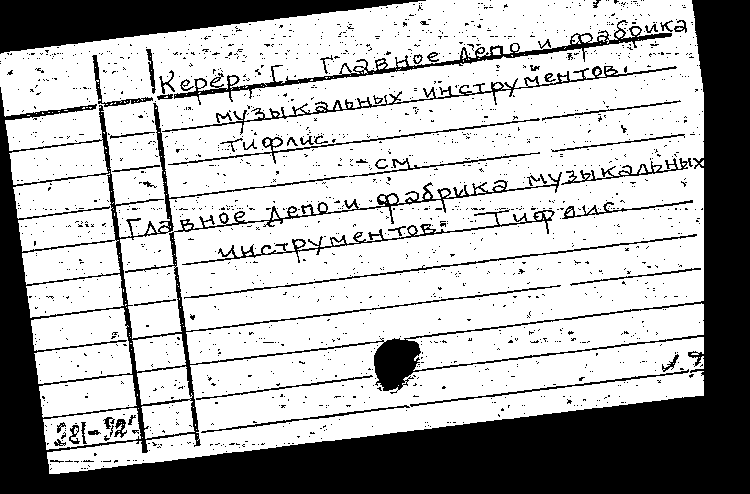 Керер, Г. Главное депо и фабрика
музыкальных инструментов.
Тифлис.
см.
Главное депо и фабрика музыкальных
инструментов. Тифлис.